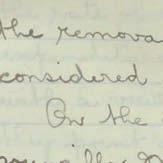 the remova
considered
On the